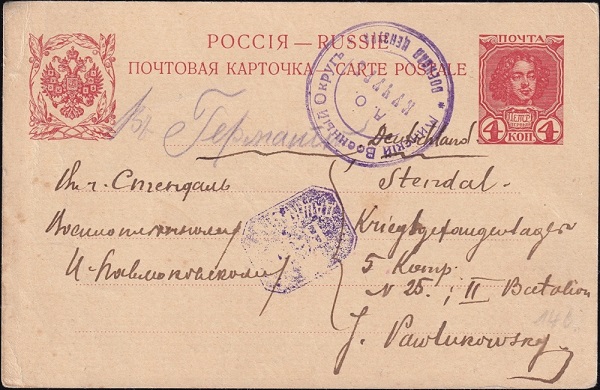 РОССІЯ — RUSSIE
ПОЧТОВАЯ КАРТОЧКА — CARTE POSTALE
ПОЧТА
4 4
КОП
МИНСКІЙ ВОЕННЫЙ ОКРУГЪ * ВОЕННАЯ ЦЕНЗУРА
Въ Германі
Deutschland
Въ г. Стендаль
Stendal.
Военноплѣнному
Kriegsgefangenlager
И. Павлюковскому
5 Komp.
N 25. ; II Batalion
J. Pawlukowsky
146.